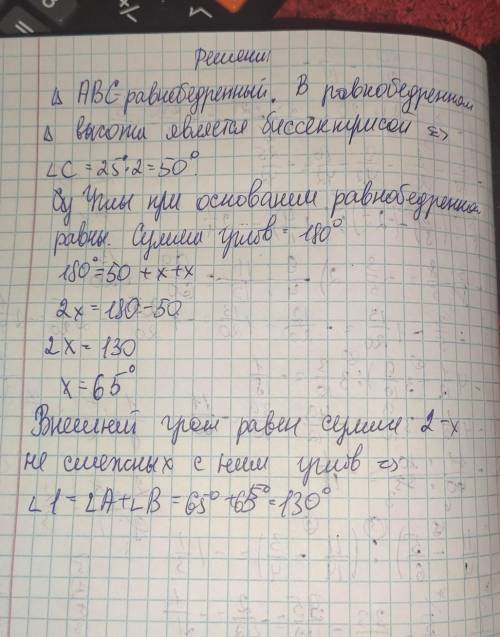 Решение:
Δ ABC равнобедренный. В равнобедренном
Δ высота является биссектрисой =>
∠C = 25°·2 = 50°
Углы при основании равнобедренно.
равны. Сумма углов = 180°
180° = 50 + x + x
2x = 180 - 50
2x = 130
x = 65°
Внешний угол равен сумме 2-х
не смежных с ним углов =>
∠1 = ∠A + ∠B = 65° + 65° = 130°